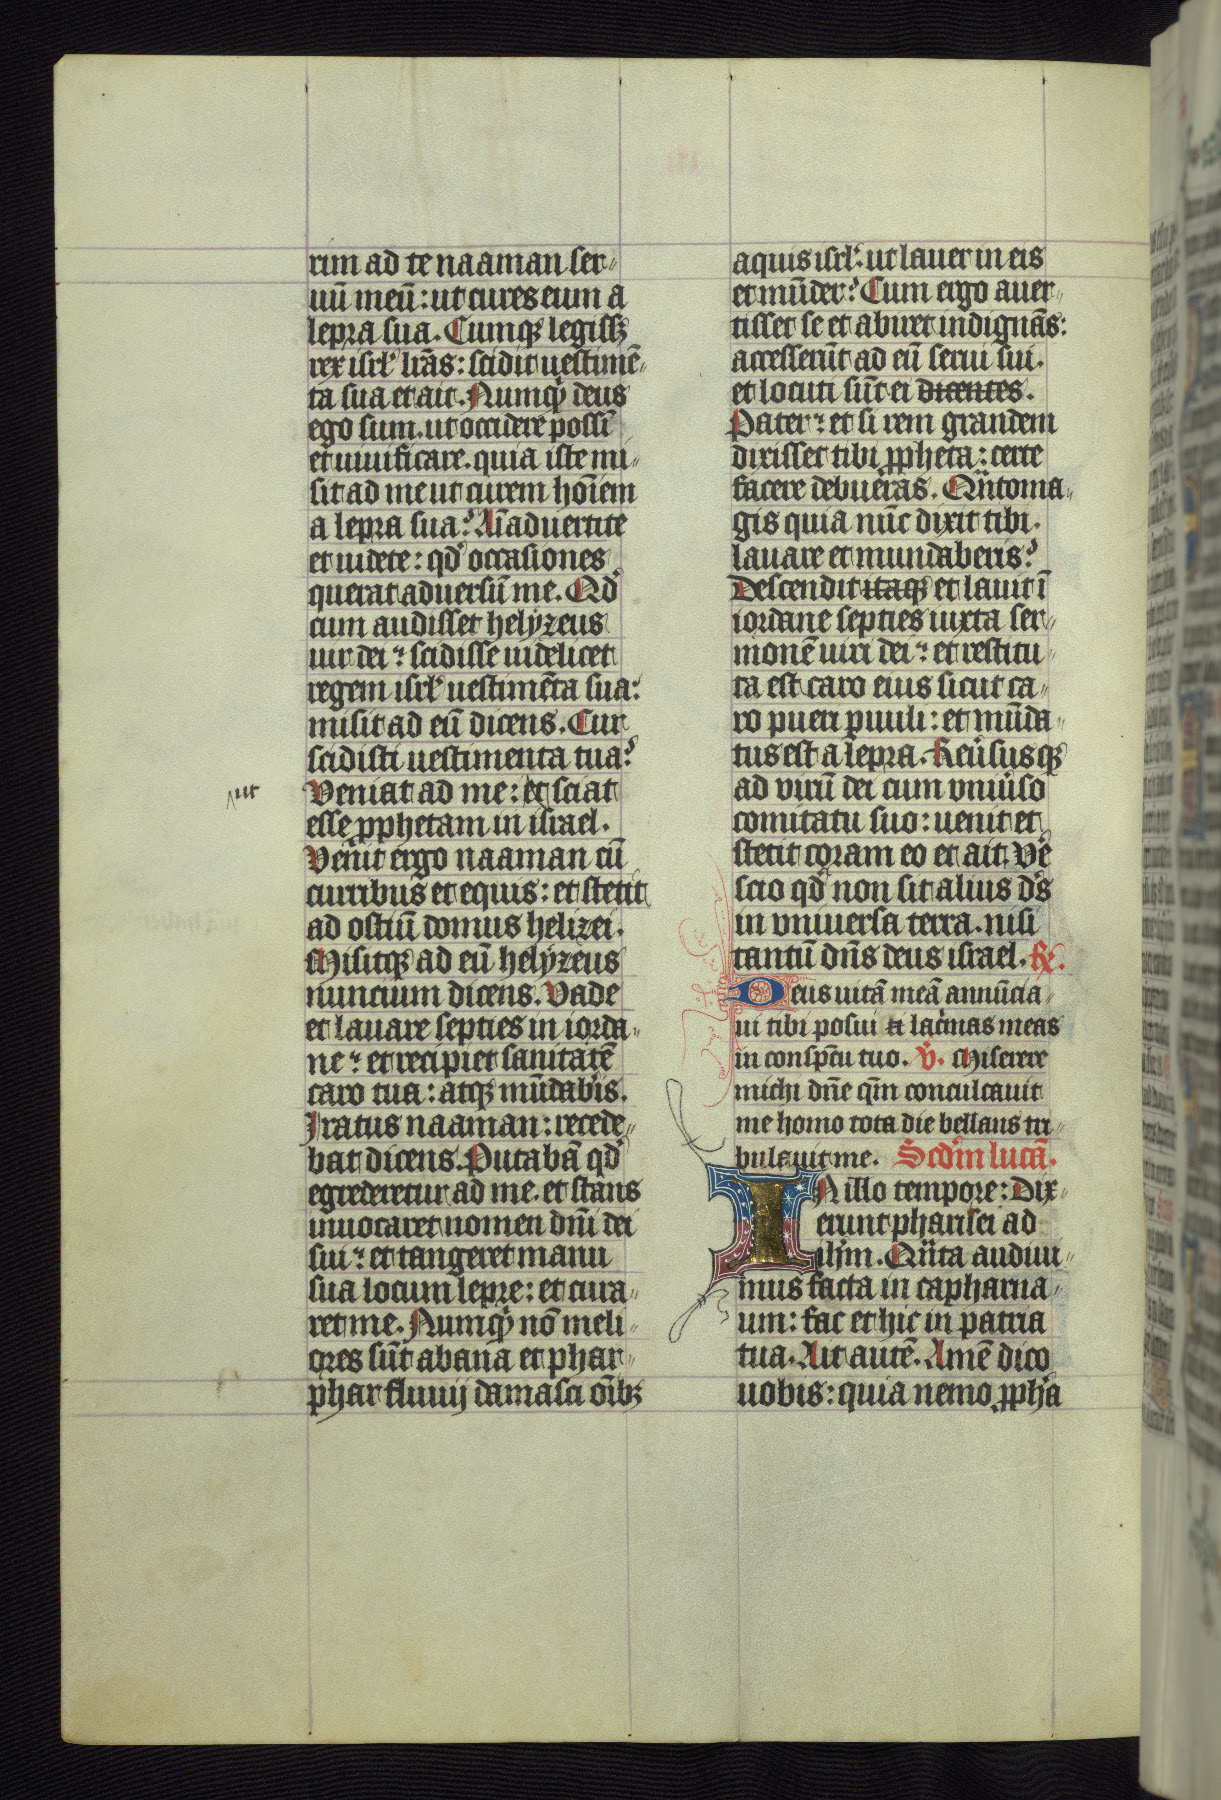 rim ad te naaman ser-
uū meū: ut cures eum a
lepra sua. Cumqꝫ legissꝫ
rex isrl' lr̄as: scidit uestimē-
ta sua et ait. Numqͥd deus
ego sum. ut occidere possī
et uiuificare. quia iste mi-
sit ad me ut curem hoīem
a lepra sua? Aīaduertite
et uidete: qd' occasiones
querat aduersū me. Qd'
cum audisset helyzeus
uir dei: scidisse uidelicet
regem isrl' uestimēta sua:
misit ad eū dicens. Cur
scidisti uestimenta tua?
ut
Veniat ad me: et sciat
esse ꝓphetam in israel.
Venit ergo naaman cū
curribus et equis: et stetit
ad ostiū domus helizei.
Misitqꝫ ad eū helyzeus
nuncium dicens. Vade
et lauare septies in iorda-
ne: et recipiet sanitatē
caro tua: atqꝫ mūdab'is.
Iratus naaman: recede-
bat dicens. Putabā qd'
egrederetur ad me. et stans
inuocaret nomen dn̄i dei
sui: et tangeret manu
sua locum lepre: et cura-
ret me. Numqͥd nō meli-
ores sūt abana et phar-
phar fluuij damasci oībꝫ
aquis isrl': ut lauer in eis
et mūder? Cum ergo auer-
tisset se et abiret indignās:
accesserūt ad eū serui sui.
et locuti sūt ei dicentes.
Pater: et si rem grandem
dixisset tibi ꝓpheta: certe
facere debueras. Qn̄to ma-
gis quia nūc dixit tibi.
lauare et mundaberis?
Descendit itaqꝫ et lauit ī
iordane septies iuxta ser-
monē uiri dei: et restitu-
ta est caro eius sicut ca-
ro pueri ꝑuuli: et mūda-
tus est a lepra. Reu'susqꝫ
ad virū dei cum vniu'so
comitatu suo: uenit et
stetit coram eo et ait. Ve'
scio qd' non sit alius d's
in vniuersa terra. nisi
tantū dn̄s deus israel. Re.
Deus uitā meā annūcia-
ui tibi posuisti lac'mas meas
in conspc̄tu tuo. V. Miserere
michi dn̄e qm̄ conculcauit
me homo tota die bellans tri-
bulauit me. Scd'm lucā.
IN illo tempore: Dix-
erunt pharisei ad
ih̄m. Qn̄ta audiui-
mus facta in capharna-
um: fac et hic in patria
tua. Ait autē. Amē dico
uobis: quia nemo ꝓph'a